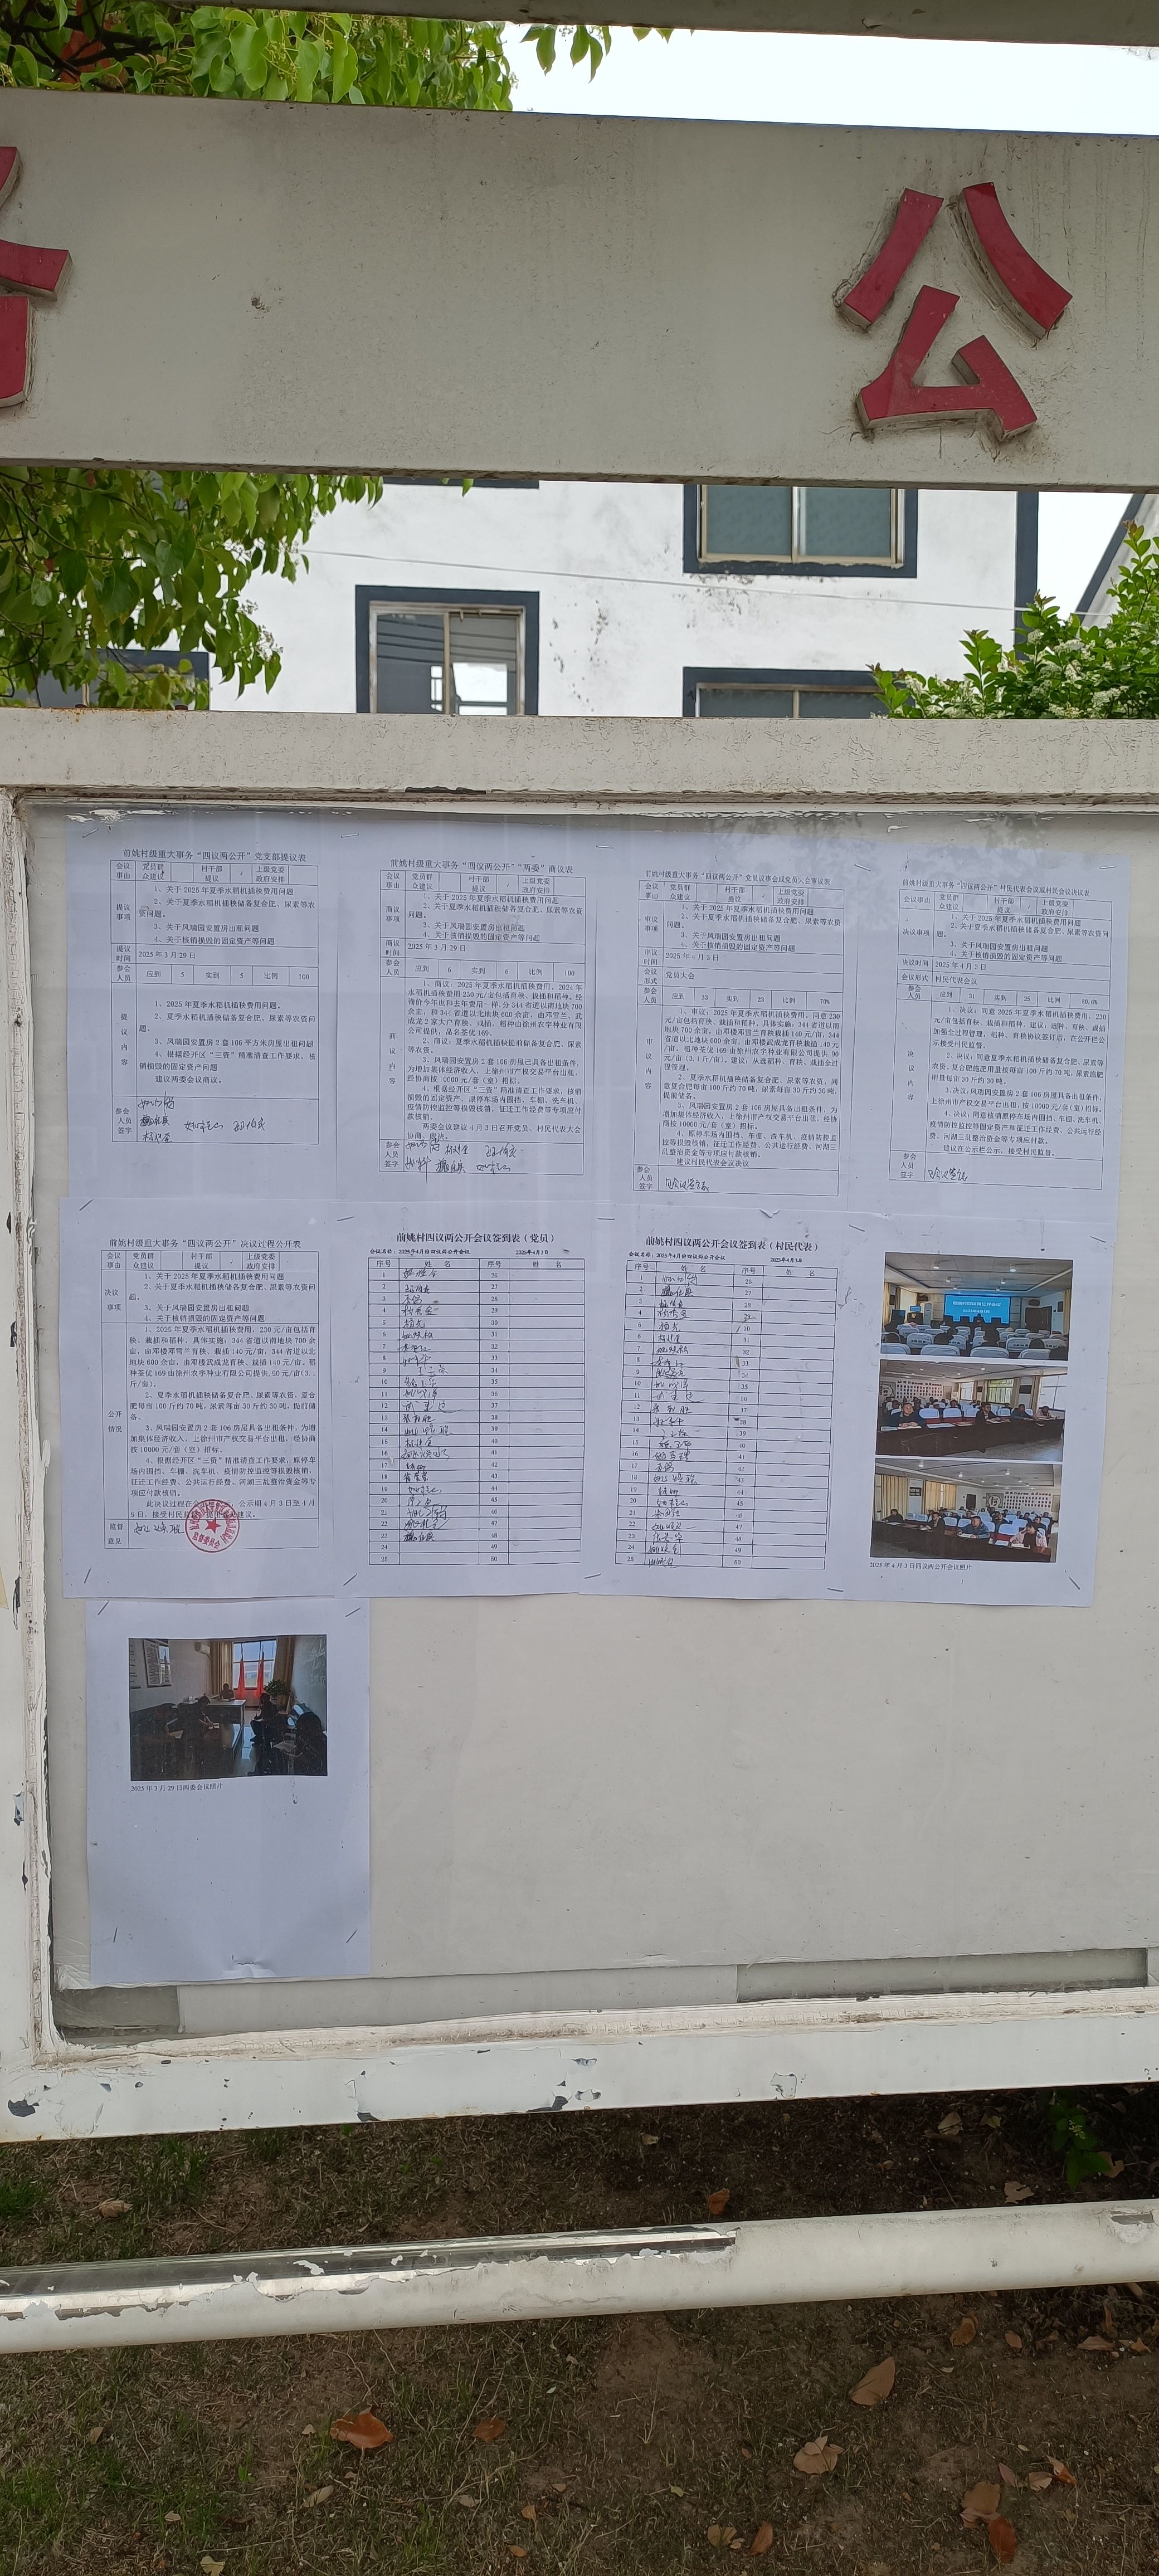 公
前姚村级重大事务“四议两公开”党支部提议表
会议事由 党员群众建议 村干部提议 上级党委政府安排
提议事项
1、关于 2025 年夏季水稻机插秧费用问题
2、关于夏季水稻机插秧储备复合肥、尿素等农资问题。
3、关于凤瑞园安置房出租问题
4、关于核销损毁的固定资产等问题
提议时间 2025 年 3 月 29 日
参会人员 应到 5 实到 5 比例 100
提议内容
1、2025 年夏季水稻机插秧费用问题。
2、夏季水稻机插秧储备复合肥、尿素等农资问题。
3、凤瑞园安置房 2 套 106 平方米房屋出租问题
4、根据经开区“三资”精准清查工作要求，核销损毁的固定资产问题
建议两委会议商议。
参会人员签字
前姚村级重大事务“四议两公开”“两委”商议表
会议事由 党员群众建议 村干部提议 上级党委政府安排
商议事项
1、关于 2025 年夏季水稻机插秧费用问题
2、关于夏季水稻机插秧储备复合肥、尿素等农资问题。
3、关于凤瑞园安置房出租问题
4、关于核销损毁的固定资产等问题
商议时间 2025 年 3 月 29 日
参会人员 应到 6 实到 6 比例 100
商议内容
1、商议：2025 年夏季水稻机插秧费用。2024 年
水稻机插秧费用 230 元/亩包括育秧、栽插和稻种。经
询价今年也和去年费用一样，分 344 省道以南地块 700
余亩，和 344 省道以北地块 600 余亩，由邓雪兰、武
成龙 2 家大户育秧、栽插，稻种由徐州农宇种业有限公
司提供，品名签优 169。
2、商议：夏季水稻机插秧提前储备复合肥、尿素
等农资。
3、凤瑞园安置房 2 套 106 房屋已具备出租条件，
为增加集体经济收入，上徐州市产权交易平台出租，
经协商按 10000 元/套（室）招标。
4、根据经开区“三资”精准清查工作要求，核销
损毁的固定资产，原停车场内围挡、车棚、洗车机、
疫情防控监控等损毁核销，征迁工作经费等专项应付
款核销。
两委会议建议 4 月 3 日召开党员、村民代表大会
协商、表决。
参会人员签字
前姚村级重大事务“四议两公开”党员议事会或党员大会审议表
会议事由 党员群众建议 村干部提议 上级党委政府安排
审议事项
1、关于 2025 年夏季水稻机插秧费用问题
2、关于夏季水稻机插秧储备复合肥、尿素等农资问题。
3、关于凤瑞园安置房出租问题
4、关于核销损毁的固定资产等问题
审议时间 2025 年 4 月 3 日
会议形式 党员大会
参会人员 应到 33 实到 23 比例 70%
审议内容
1、审议：2025 年夏季水稻机插秧费用，同意 230
元/亩包括育秧、栽插和稻种，具体实施：344 省道以南
地块 700 余亩，由邓楼邓雪兰育秧栽插 140 元/亩，344
省道以北地块 600 余亩，由邓楼武成龙育秧栽插 140 元/
亩。稻种签优 169 由徐州农宇种业有限公司提供，90
元/亩（3.1 斤/亩）。建议：从选稻种、育秧、栽插全过
程管理。
2、夏季水稻机插秧储备复合肥、尿素等农资，同
意复合肥每亩 100 斤约 70 吨，尿素每亩 30 斤约 30 吨，
提前储备。
3、凤瑞园安置房 2 套 106 房屋具备出租条件，为
增加集体经济收入，上徐州市产权交易平台出租，经协
商按 10000 元/套（室）招标。
4、原停车场内围挡、车棚、洗车机、疫情防控监
控等损毁核销，征迁工作经费、公共运行经费、河湖三
乱整治资金等专项应付款核销。
建议村民代表会议决议
参会人员签字 见会议签到表
前姚村级重大事务“四议两公开”村民代表会议或村民会议决议表
会议事由 党员群众建议 村干部提议 上级党委政府安排
决议事项
1、关于 2025 年夏季水稻机插秧费用问题
2、关于夏季水稻机插秧储备复合肥、尿素等农资问题。
3、关于凤瑞园安置房出租问题
4、关于核销损毁的固定资产等问题
决议时间 2025 年 4 月 3 日
会议形式 村民代表会议
参会人员 应到 31 实到 25 比例 80.6%
决议内容
1、决议：同意 2025 年夏季水稻机插秧费用，230
元/亩包括育秧、栽插和稻种。建议：选种、育秧、栽插
加强全过程管理，稻种、育秧协议签订后，在公开栏公
示接受村民监督。
2、决议：同意夏季水稻机插秧储备复合肥、尿素等
农资。复合肥施肥用量按每亩 100 斤约 70 吨，尿素施肥
用量每亩 30 斤约 30 吨。
3、决议：凤瑞园安置房 2 套 106 房屋具备出租条件，
上徐州市产权交易平台出租，按 10000 元/套（室）招标。
4、决议：同意核销原停车场内围挡、车棚、洗车机、
疫情防控监控等固定资产和征迁工作经费、公共运行经
费、河湖三乱整治资金等专项应付款。
建议在公示栏公示，接受村民监督。
参会人员签字 见会议签到表
前姚村级重大事务“四议两公开”决议过程公开表
会议事由 党员群众建议 村干部提议 上级党委政府安排
决议事项
1、关于 2025 年夏季水稻机插秧费用问题
2、关于夏季水稻机插秧储备复合肥、尿素等农资问题。
3、关于凤瑞园安置房出租问题
4、关于核销损毁的固定资产等问题
公开情况
1、2025 年夏季水稻机插秧费用，230 元/亩包括育
秧、栽插和稻种，具体实施：344 省道以南地块 700 余
亩，由邓楼邓雪兰育秧、栽插 140 元/亩，344 省道以北
地块 600 余亩，由邓楼武成龙育秧、栽插 140 元/亩。稻
种签优 169 由徐州农宇种业有限公司提供，90 元/亩（3.1
斤/亩）。
2、夏季水稻机插秧储备复合肥、尿素等农资，复合
肥每亩 100 斤约 70 吨，尿素每亩 30 斤约 30 吨，提前储
备。
3、凤瑞园安置房 2 套 106 房屋具备出租条件，为增
加集体经济收入，上徐州市产权交易平台出租，经协商
按 10000 元/套（室）招标。
4、根据经开区“三资”精准清查工作要求，原停车
场内围挡、车棚、洗车机、疫情防控监控等损毁核销，
征迁工作经费、公共运行经费、河湖三乱整治资金等专
项应付款核销。
此决议过程在公 公示期 4 月 3 日至 4 月
9 日，接受村民监
监督意见
前姚村四议两公开会议签到表（党员）
会议名称：2025年4月份四议两公开会议 2025年4月3日
序号 姓名 序号 姓名
1 26
2 27
3 28
4 29
5 30
6 31
7 32
8 33
9 34
10 35
11 36
12 37
13 38
14 39
15 40
16 41
17 42
18 43
19 44
20 45
21 46
22 47
23 48
24 49
25 50
前姚村四议两公开会议签到表（村民代表）
会议名称：2025年4月份四议两公开会议 2025年4月3日
序号 姓名 序号 姓名
1 26
2 27
3 28
4 29
5 30
6 31
7 32
8 33
9 34
10 35
11 36
12 37
13 38
14 39
15 40
16 41
17 42
18 43
19 44
20 45
21 46
22 47
23 48
24 49
25 50
前姚村四议两公开会议
2025 年 4 月 3 日四议两公开会议照片
2025 年 3 月 29 日两委会议照片